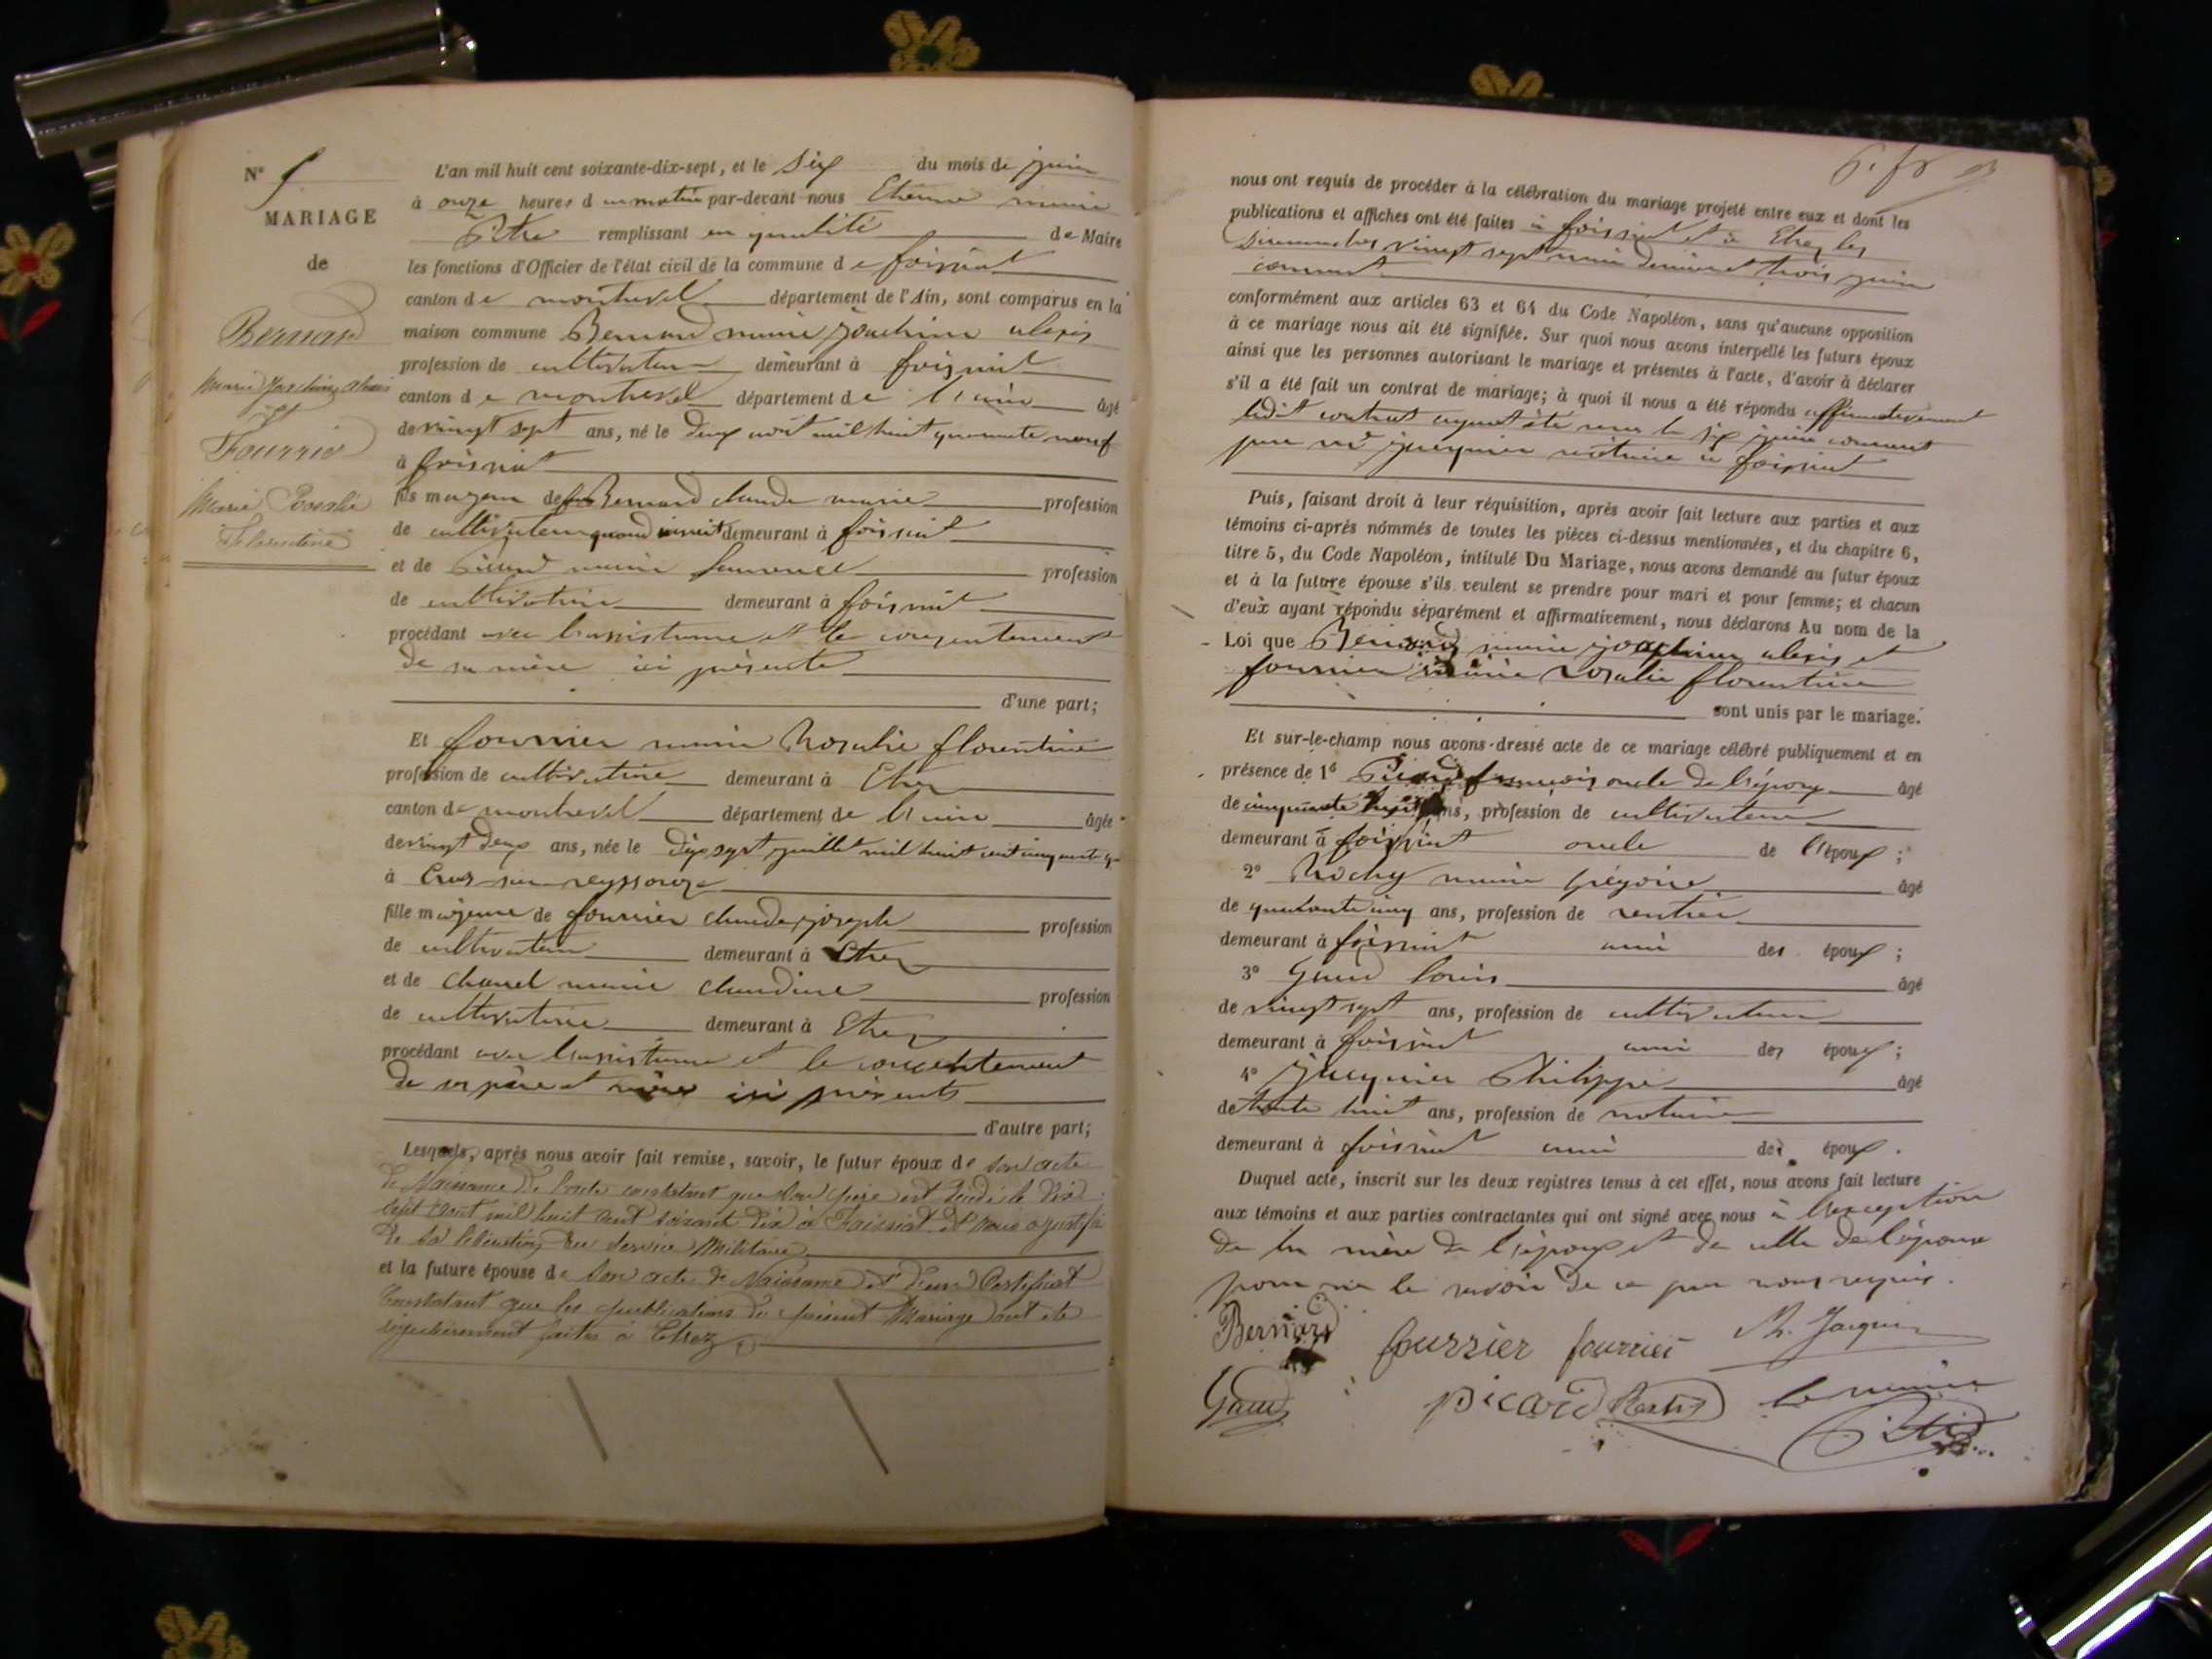 N°
MARIAGE
de
Bernard
Marie Joachim Alexis
et
Fourrier
Marie Rosalie
Florentine
L'an mil huit cent soixante-dix-sept, et le Six du mois de juin
à onze heures d u matin par-devant nous Etienne marie
remplissant en qualité de Maire
les fonctions d'Officier de l'état civil de la commune d e foissiat
canton d e montrevel département de l'Ain, sont comparus en la
maison commune Bernard marie joachim alexis
profession de cultivateur demeurant à foissiat
canton d e montrevel département d e l'ain âgé
de vingt sept ans, né le deux août mil huit quarante neuf
à foissiat
fils majeur de feu Bernard claude marie profession
de cultivateur quand vivait demeurant à foissiat
et de Picard marie profession
de cultivatrice demeurant à foissiat
procédant avec l'assistance et le consentement
de sa mère ici présente
d'une part;
Et fourrier marie Rosalie florentine
profession de cultivatrice demeurant à Etrez
canton de montrevel département de l'ain âgée
de vingt deux ans, née le dix sept juillet mil huit cent cinquante
à Cras sur reyssouze
fille majeure de fourrier claude joseph profession
de cultivateur demeurant à Etrez
et de chanel marie claudine profession
de cultivatrice demeurant à Etrez
procédant avec l'assistance et le consentement
de ses père et mère ici présents
d'autre part;
Lesquels, après nous avoir fait remise, savoir, le futur époux de son acte
de Naissance, de l'acte constatant que son père est décédé le dix
sept août mil huit cent soixante dix à Foissiat et nous a justifié
de sa libération du service Militaire
et la future épouse de son acte de Naissance et d'un Certificat
Constatant que les publications du présent Mariage ont été
régulièrement faites à Etrez
nous ont requis de procéder à la célébration du mariage projeté entre eux et dont les
publications et affiches ont été faites à foissiat et à Etrez les
dimanches vingt sept mai dernier et trois juin
courant
conformément aux articles 63 et 64 du Code Napoléon, sans qu'aucune opposition
à ce mariage nous ait été signifiée. Sur quoi nous avons interpellé les futurs époux
ainsi que les personnes autorisant le mariage et présentes à l'acte, d'avoir à déclarer
s'il a été fait un contrat de mariage; à quoi il nous a été répondu affirmativement
ledit contrat ayant été reçu le six juin courant
par me jacquier notaire à foissiat
Puis, faisant droit à leur réquisition, après avoir fait lecture aux parties et aux
témoins ci-après nommés de toutes les pièces ci-dessus mentionnées, et du chapitre 6,
titre 5, du Code Napoléon, intitulé Du Mariage, nous avons demandé au futur époux
et à la future épouse s'ils veulent se prendre pour mari et pour femme; et chacun
d'eux ayant répondu séparément et affirmativement, nous déclarons Au nom de la
Loi que Bernard marie joachim alexis et
fourrier marie rosalie florentine
sont unis par le mariage.
Et sur-le-champ nous avons dressé acte de ce mariage célébré publiquement et en
présence de 1° Picard françois oncle de l'époux âgé
de cinquante ans, profession de cultivateur
demeurant à foissiat oncle de l'époux ;
2° marie grégoire âgé
de quarante cinq ans, profession de rentier
demeurant à foissiat ami des époux ;
3° Gaud louis âgé
de vingt sept ans, profession de cultivateur
demeurant à foissiat ami des époux ;
4° jacquier Philippe âgé
de trente huit ans, profession de notaire
demeurant à foissiat ami des époux .
Duquel acte, inscrit sur les deux registres tenus à cet effet, nous avons fait lecture
aux témoins et aux parties contractantes qui ont signé avec nous à l'exception
de la mère de l'époux et de celle de l'épouse
pour ne le savoir de ce par nous requis.
Bernard fourrier fourrier Ph. Jacquier
Gaud picard le maire